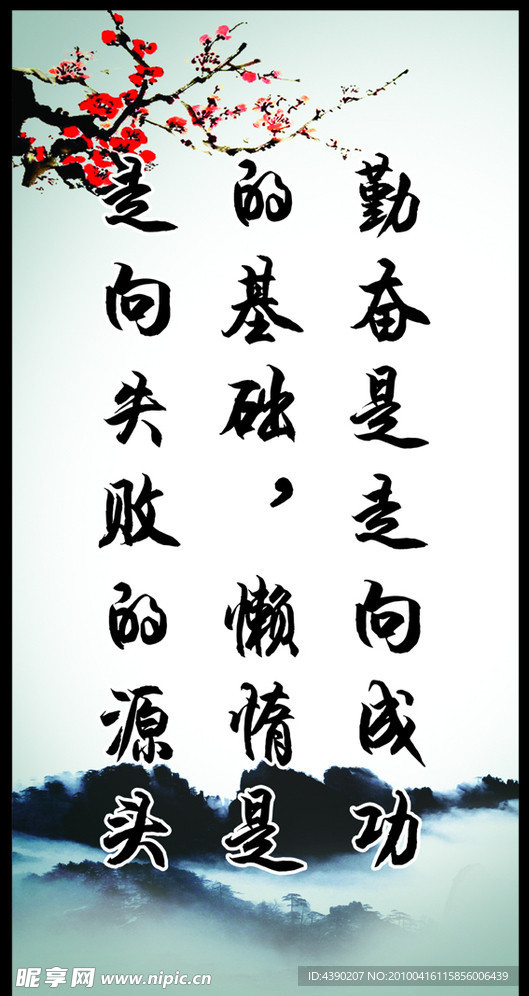 勤奋是走向成功
的基础，懒惰是
走向失败的源头
昵享网 www.nipic.cn
ID:4390207 NO:20100416115856006439